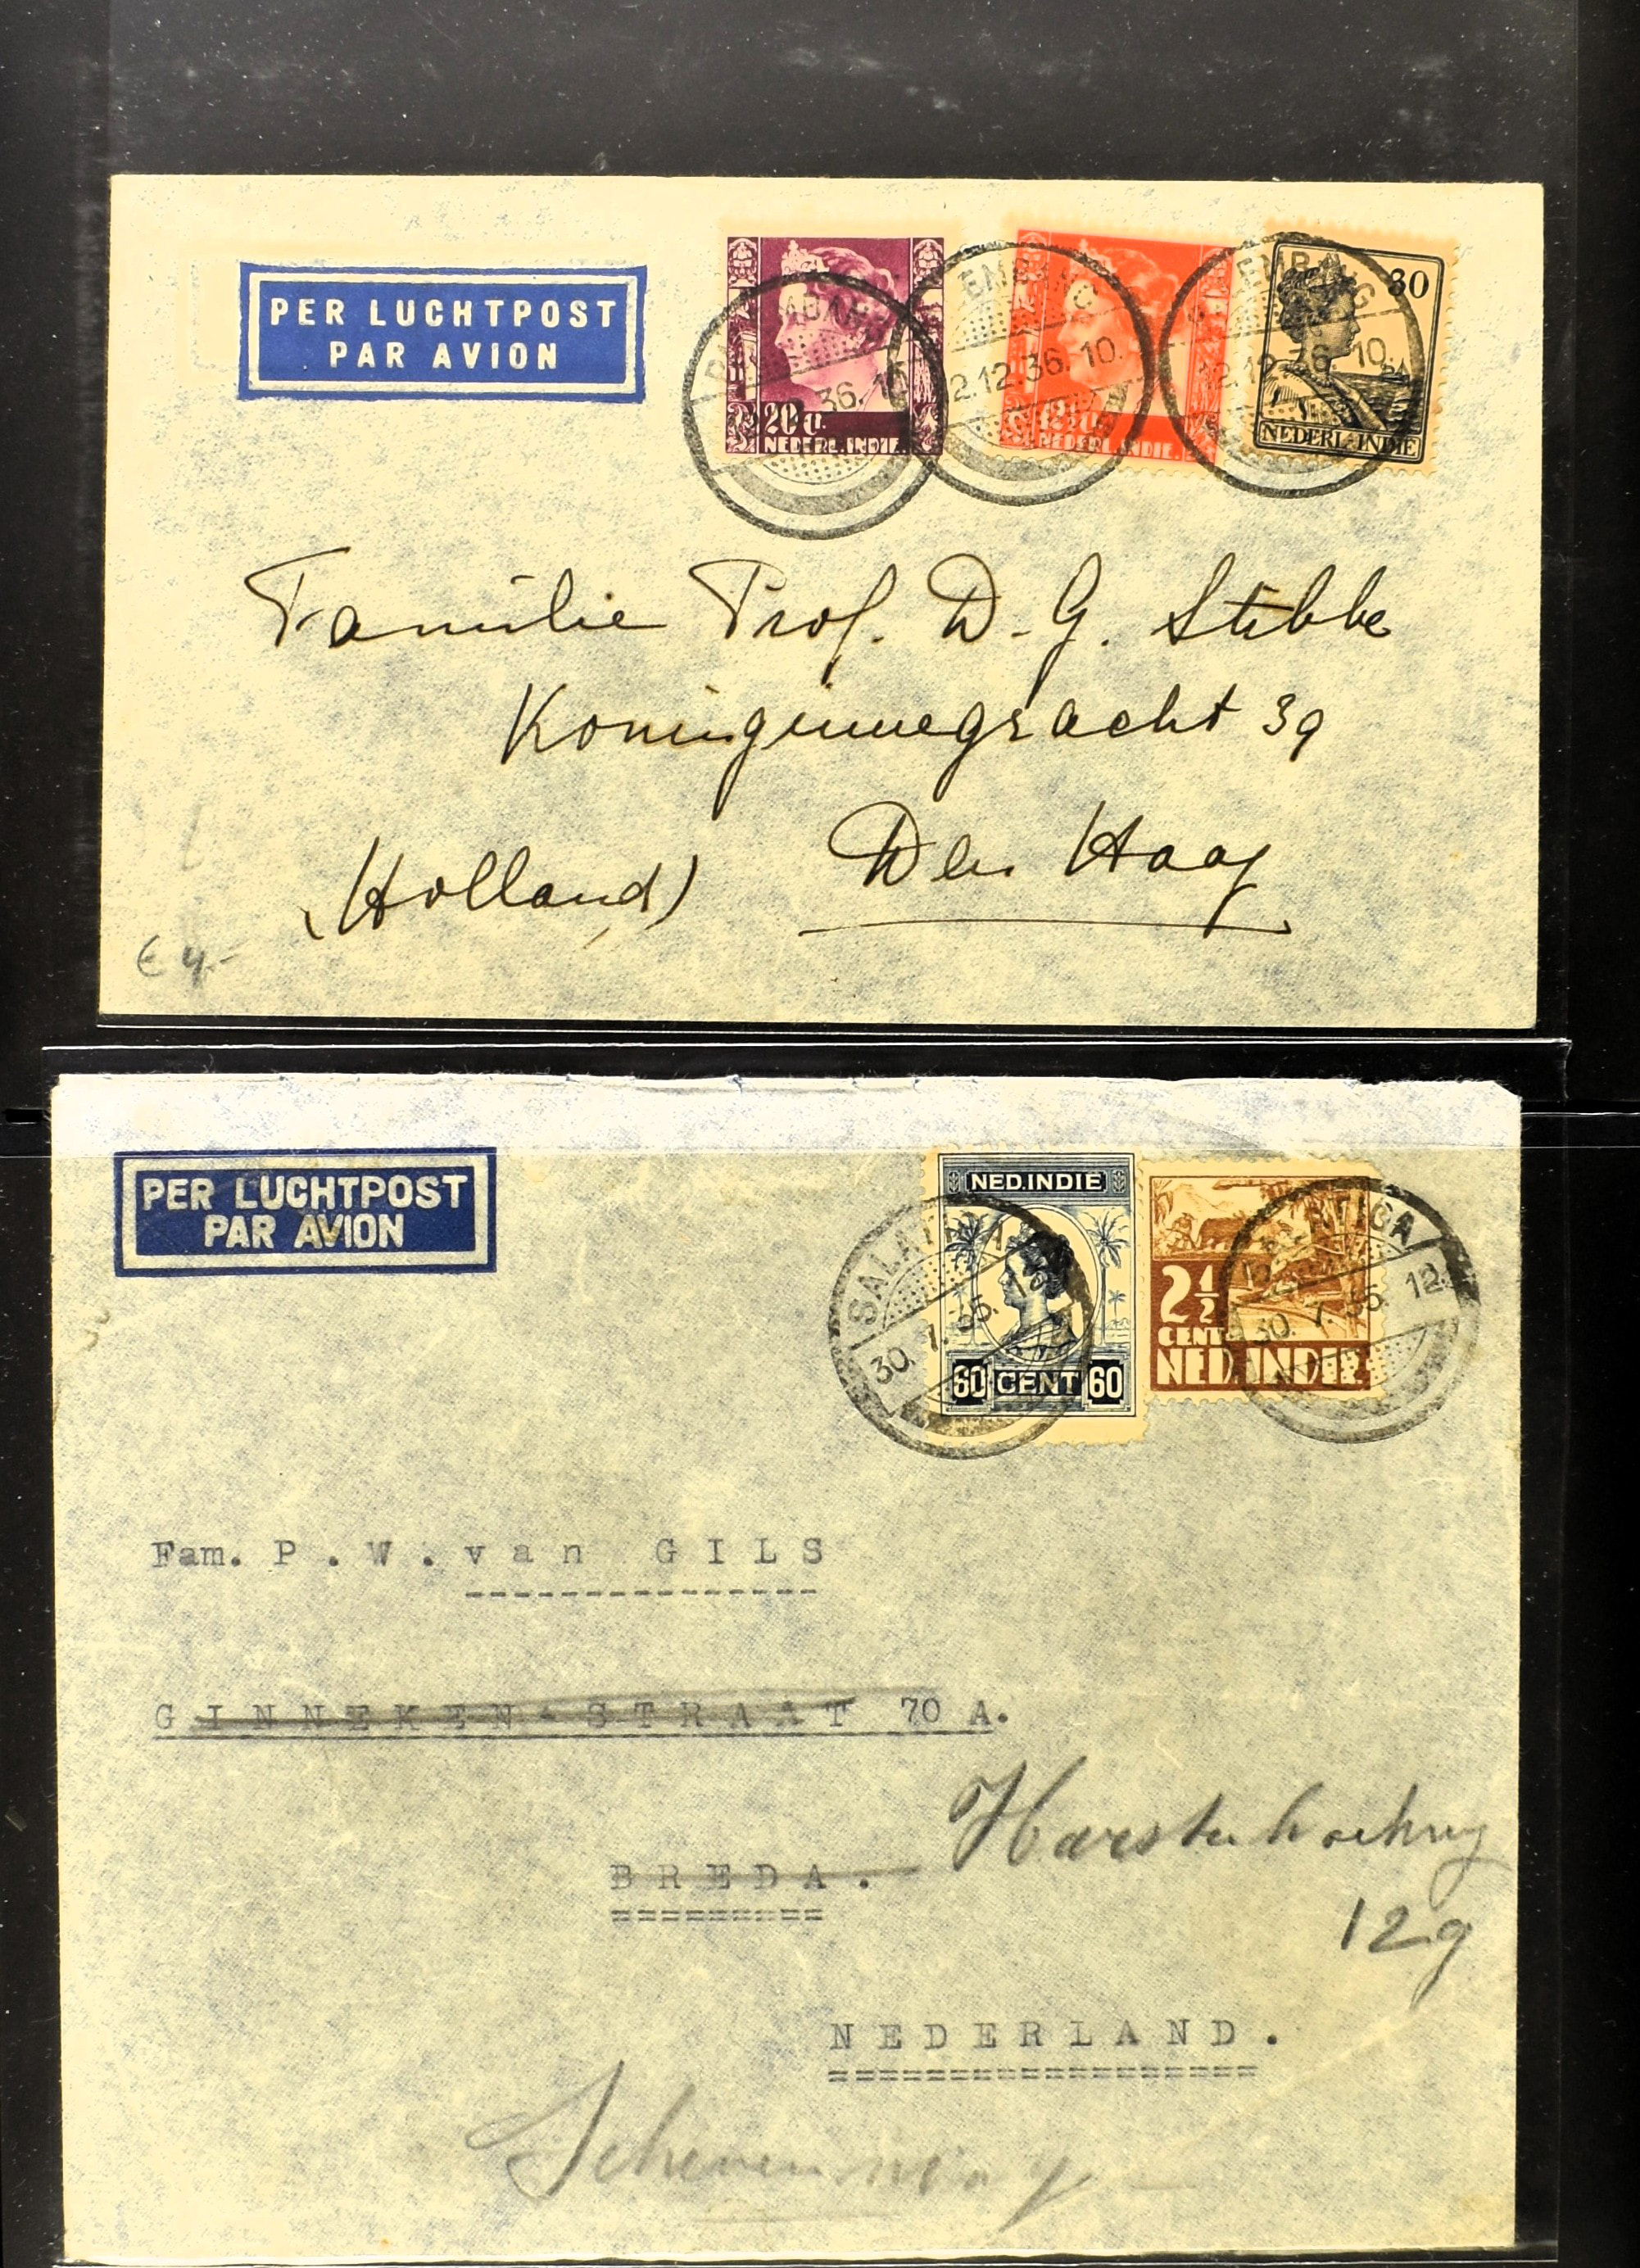 PER LUCHTPOST
PAR AVION
20 c.
NEDERL. INDIE.
12.12.36. 10.
NEDERL. INDIE.
30
NEDERL-INDIE
Familie Prof. D. G. Stibbe
Koninginnegracht 39
(Holland) Den Haag
€ 4,-
PER LUCHTPOST
PAR AVION
NED.INDIE
60 CENT 60
2½
CENT
NED.INDIE
SALATIGA
30. 7. 35. 12
SALATIGA
30. 7. 35. 12.
Fam. P.W. van GILS
GINNEKEN-STRAAT 70 A.
BREDA.
129
NEDERLAND.